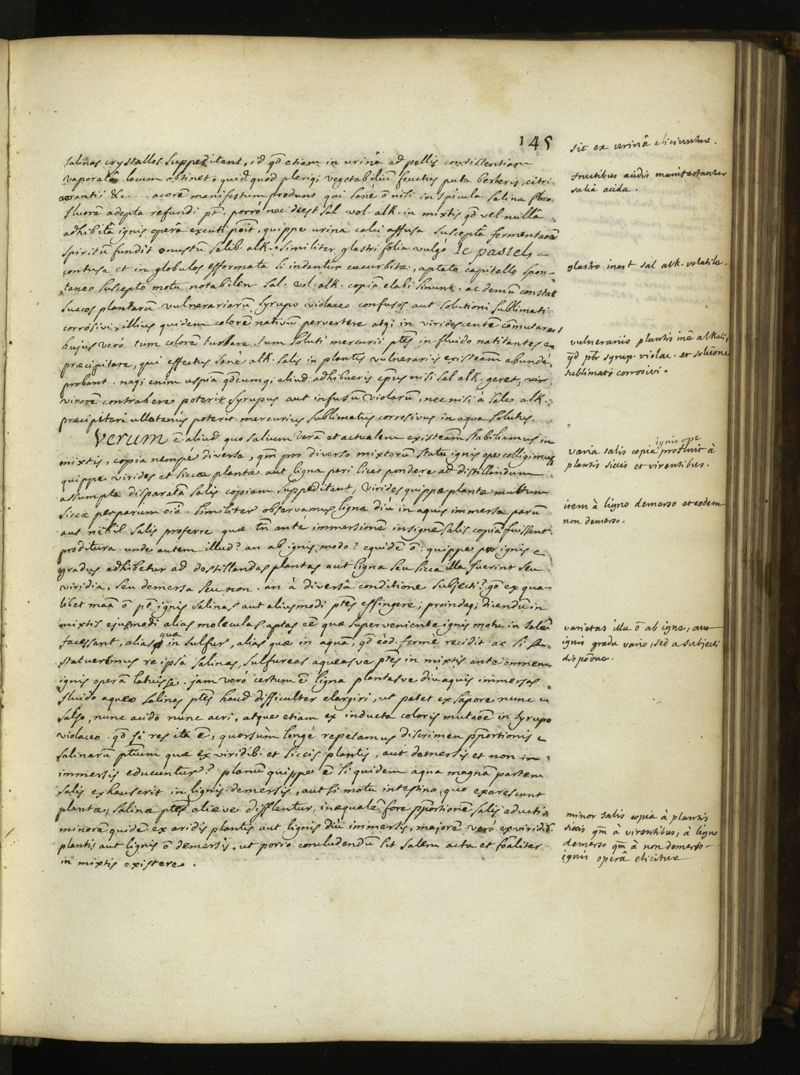 145
salinas crystallos suppeditant, id qd etiam in urinâ ad pellis consistentiam
vaporatâ locum obtinet, quid quod plerique vegetabiliũ fructus puta berberis, citri
arantii &c... acorẽ manifestum produnt qui sane õ nisi in spicula salina
fluorẽ adepta refundi pt. porro nec deest sal vol. alk. in mixtis qd vel nullâ
adhibitâ ignis operâ excuti poit, quippe urina calci affusa susceptâ fermentaõe
spiritũ fundit onustũ salib. alk. similiter glastri folia vulgò le pastel,
contusa et in globulos efformata si indantur cucurbitæ, aptato capitello spon-
taneo suscepto motu notabilem sal. vol. alk. copiã elabi sinunt. ac demũ constat
succos plantarũ vulnerariarũ syrupo violaceo confusos aut solutioni sublimati
corrosivi, illius quidem colorẽ nativũ pervertere atqi in viridescentẽ cõmutare
hujus verò tum colorẽ turbare, tum soluti mercurii ptes in fluido natitantes
præcipitare, qui effectus sanè alk. salis in plantis vulnerariis existeam abundè
probant. neqi enim uspiã qdcumqi aliud adhibueris epus nisi sal alk. geret, vir-
virorẽ contrahere poterit syrupus aut infusũ violarũ, nec nisi à sale alk.
præcipitari ullatenùs poterit mercurius sublimatus corrosivus in aqua solutus.
Verum ẽ aliud quo salium verã et actualem existeam stabiliamus in
mixtis, copia nempè diversa, qm pro diverso mixtorũ statu ignis ope colligimus
quippe virides et siccæ plantæ aut ligna pari licet pondere ad distillandum
assumpta disparatã salis copiam suppeditant, virides quippe plantæ multum
siccæ perparum eiõ. similiter observamus ligna diù in aquis immersa parũ
aut nihil salis proferre quæ tñ ante immersionẽ insignẽ salis copiã fuissent
proditura. unde autem illud? an ab ignis modo? equidẽ õ: quippe par ignis
gradus adhibetur ad distillandas plantas aut ligna seu sicca illa fuerint seu
viridia, seu demersa seu non. an à diversâ conditione subjecti? qõ ex qua-
libet maã õ pt ignis salinas aut aliusmodi ptes effingere; proindeqi dicendũ in
mixtis ejusmodi alias moleculas aptas eẽ quæ superveniente ignis motu in salem
facessant, alias quæ in sulfur, alias quæ in aquã, qd eõd. fermè recidit ac si
statueremus re ipsâ salinas, sulfureas aqueasve ptes in mixtis ante omnem
ignis operã latuisse. jam verò certum ẽ ligna plantasve diu aquis immersas
fluido aqueo salinas ptes haud difficulter elargiri, ut patet ex sapore nunc
salso, nunc acido nunc acri, atque etiam ex inducta coloris mutaõe in syrupo
violaceo. qd si res ita ẽ, quorsùm longè repetamus discrimen pportionis
salinarũ ptium quæ ex viridib. et siccis plantis, aut demersis et non im-
immersis educuntur? planũ quippe ẽ si quidem aqua magnã partem
salis exhauserit in lignis demersis, aut si motu intestino, quo exarescunt
plantæ, salinæ ptes aliæve difflentur, inæqualẽ fore pportionẽ salis eductis
minorẽ quidẽ ex aridis plantis aut lignis diũ immersis, majorẽ verò ex viridib.
plantis aut lignis õ demersis, ut porro concludendũ sit salem actu et foãliter
in mixtis existere.
sic ex urinâ eliciuntur.
fructibus acidis manifestantur
salia acida.
glastro inest sal alk. volatile.
vulnerariis plantis inẽ alkali,
qd ptr syrup. violac. et solutione
sublimati corrosivi.
varia salis copia ignis ope prodiit à
plantis siccis et virentibus.
item à ligno demerso et eodem
non demerso.
varietas illa õ ab igne, aut
ignis gradu vario, sed a subjecti
dispõõne.
minor salis copia à plantis
siccis qm à virentibus, à ligno
demerso qm à non demerso
ignis operâ elicitur